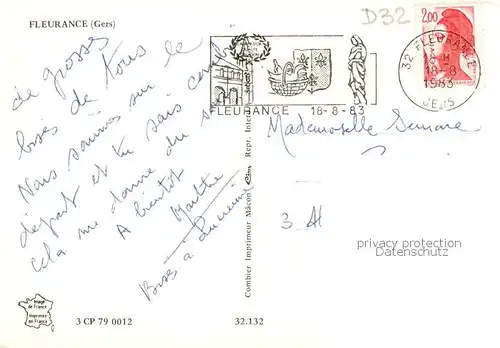 FLEURANCE (Gers)
D32
2,00
32 FLEURANCE
18-8
1983
GERS
FLEURANCE 18-8-83
de grosses
bises de tous le
Nous sommes sur le
départ et tu sais combien
cela me donne du
A bientôt
Marthe
Bises à
Mademoiselle
3
privacy protection
Datenschutz
Combier Imprimeur Mâcon
Repr. Interd.
Image de France
Imprimée en France
3 CP 79 0012
32.132